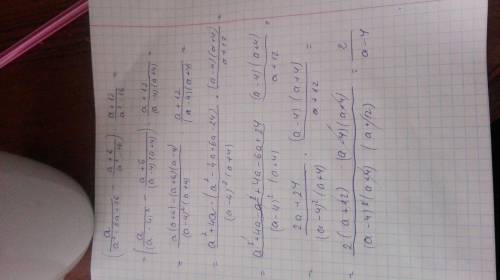 (a/(a²-8a+16) - (a+6)/(a²-16)) : (a+12)/(a²-16) =
= (a/(a-4)² - (a+6)/((a-4)(a+4))) : (a+12)/((a-4)(a+4)) =
= (a(a+4)-(a+6)(a-4))/((a-4)²(a+4)) : (a+12)/((a-4)(a+4)) =
= (a²+4a-(a²-4a+6a-24))/((a-4)²(a+4)) · ((a-4)(a+4))/(a+12) =
= (a²+4a-a²+4a-6a+24)/((a-4)²(a+4)) · ((a-4)(a+4))/(a+12) =
= (2a+24)/((a-4)²(a+4)) · ((a-4)(a+4))/(a+12) =
= (2(a+12)(a-4)(a+4))/((a-4)²(a+4)(a+12)) = 2/(a-4)